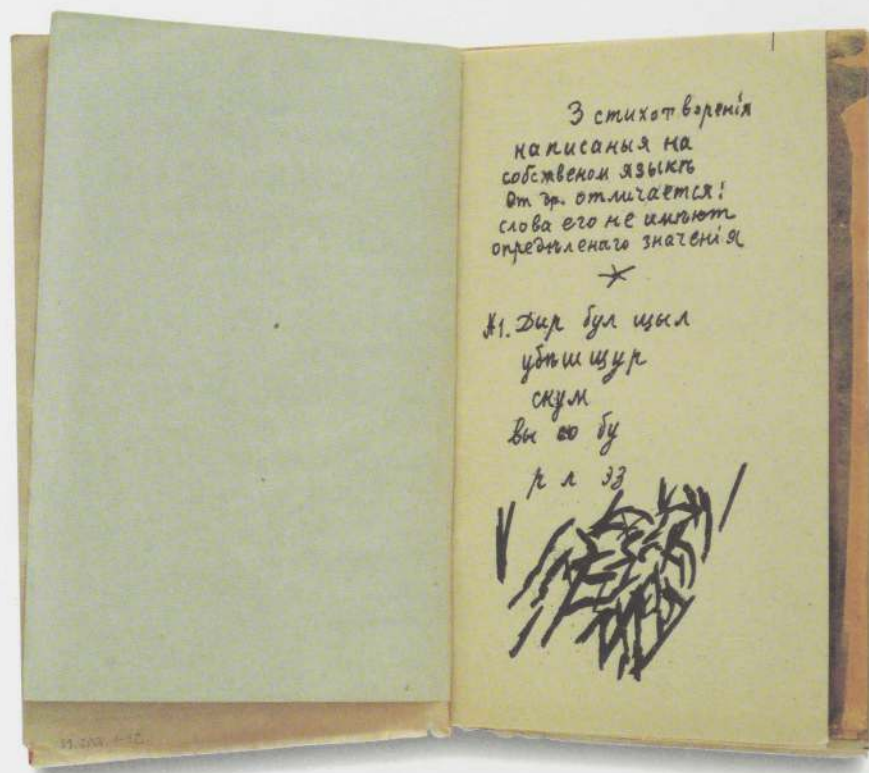 3 стихотворенія
написаныя на
собственом языкѣ
От др. отличается:
слова его не имѣют
опредѣленаго значенія
№1. Дир бул щыл
убѣшщур
скум
вы со бу
р л эз